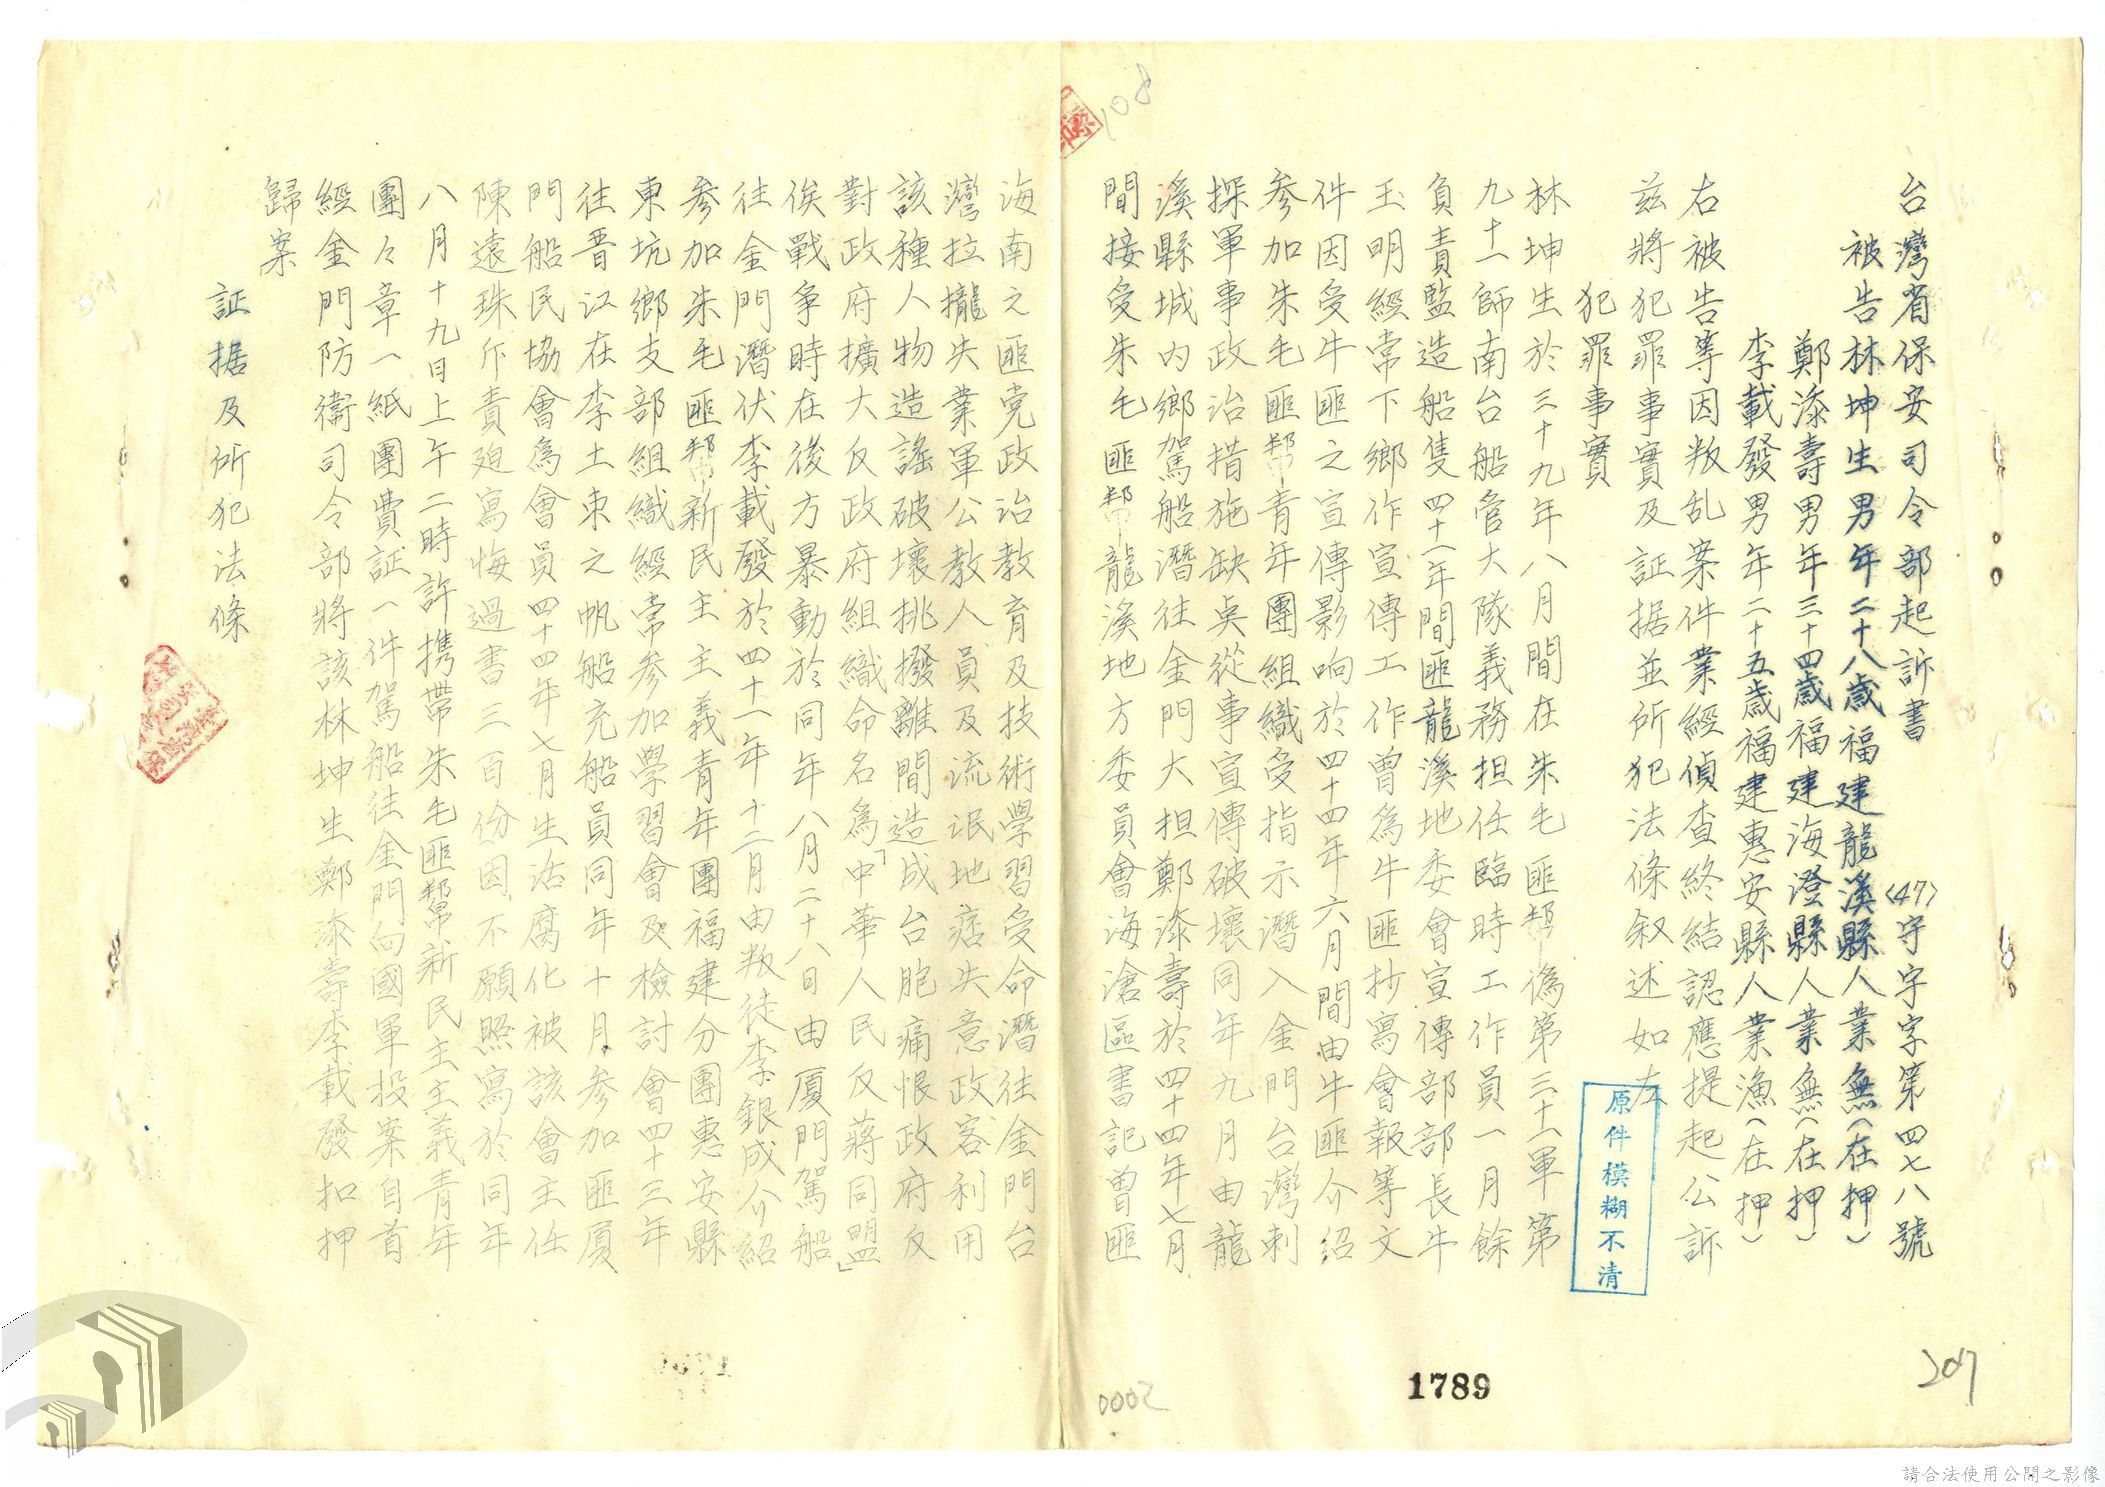 台灣省保安司令部起訴書
(47)守字字第四七八號
被告林坤生男年二十八歲福建龍溪縣人業無(在押)
鄭添壽男年三十四歲福建海澄縣人業無(在押)
李載發男年二十五歲福建惠安縣人業漁(在押)
右被告等因叛乱案件業經偵查終結認應提起公訴
兹將犯罪事實及証据並所犯法條叙述如左
犯罪事實
林坤生於三十九年八月間在朱毛匪幫偽第三十一軍第
九十一師南台船管大隊義務担任臨時工作員一月餘
負責監造船隻四十一年間匪龍溪地委會宣傳部部長牛
玉明經常下鄉作宣傳工作曾為牛匪抄寫會報等文
件因受牛匪之宣傳影响於四十四年六月間由牛匪介紹
参加朱毛匪幫青年團組織受指示潛入金門台灣刺
探軍事政治措施缺点從事宣傳破壞同年九月由龍
溪縣城内鄉駕船潛往金門大担鄭添壽於四十四年七月
間接受朱毛匪幫龍溪地方委員會海滄區書記曾匪
海南之匪党政治教育及技術學習受命潛往金門台
灣拉攏失業軍公教人員及流氓地痞失意政客利用
該種人物造謠破壞挑撥離間造成台胞痛恨政府反
對政府擴大反政府組織命名為「中華人民反蔣同盟」
俟戰争時在後方暴動於同年八月二十八日由厦門駕船
往金門潛伏李載發於四十一年十二月由叛徒李銀成介紹
参加朱毛匪幫新民主主義青年團福建分團惠安縣
東坑鄉支部組織經常参加學習會及檢討會四十三年
往晋江在李土東之帆船充船員同年十月参加匪厦
門船民協會為會員四十四年七月生活腐化被該會主任
陳遠珠斥責迫寫悔過書三百份因不願照寫於同年
八月十九日上午二時許携帶朱毛匪幫新民主主義青年
團々章一紙團費証一件駕船往金門向國軍投案自首
經金門防衛司令部將該林坤生鄭添壽李載發扣押
歸案
証据及所犯法條
原件模糊不清
108
1789
0002
207
請合法使用公開之影像